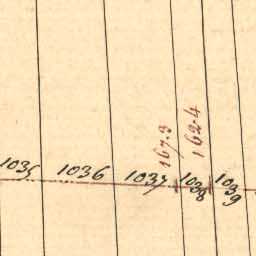 167.3
162.4
1035
1036
1037
1038
1039